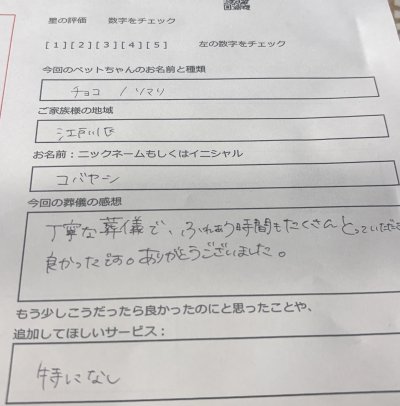 星の評価 数字をチェック
[1][2][3][4][5] 左の数字をチェック
今回のペットちゃんのお名前と種類
チョコ / ソマリ
ご家族様の地域
江戸川区
お名前：ニックネームもしくはイニシャル
コバヤーン
今回の葬儀の感想
丁寧な葬儀で、ふれあう時間もたくさんとっていただき
良かったです。ありがとうございました。
もう少しこうだったら良かったのにと思ったことや、
追加してほしいサービス：
特になし